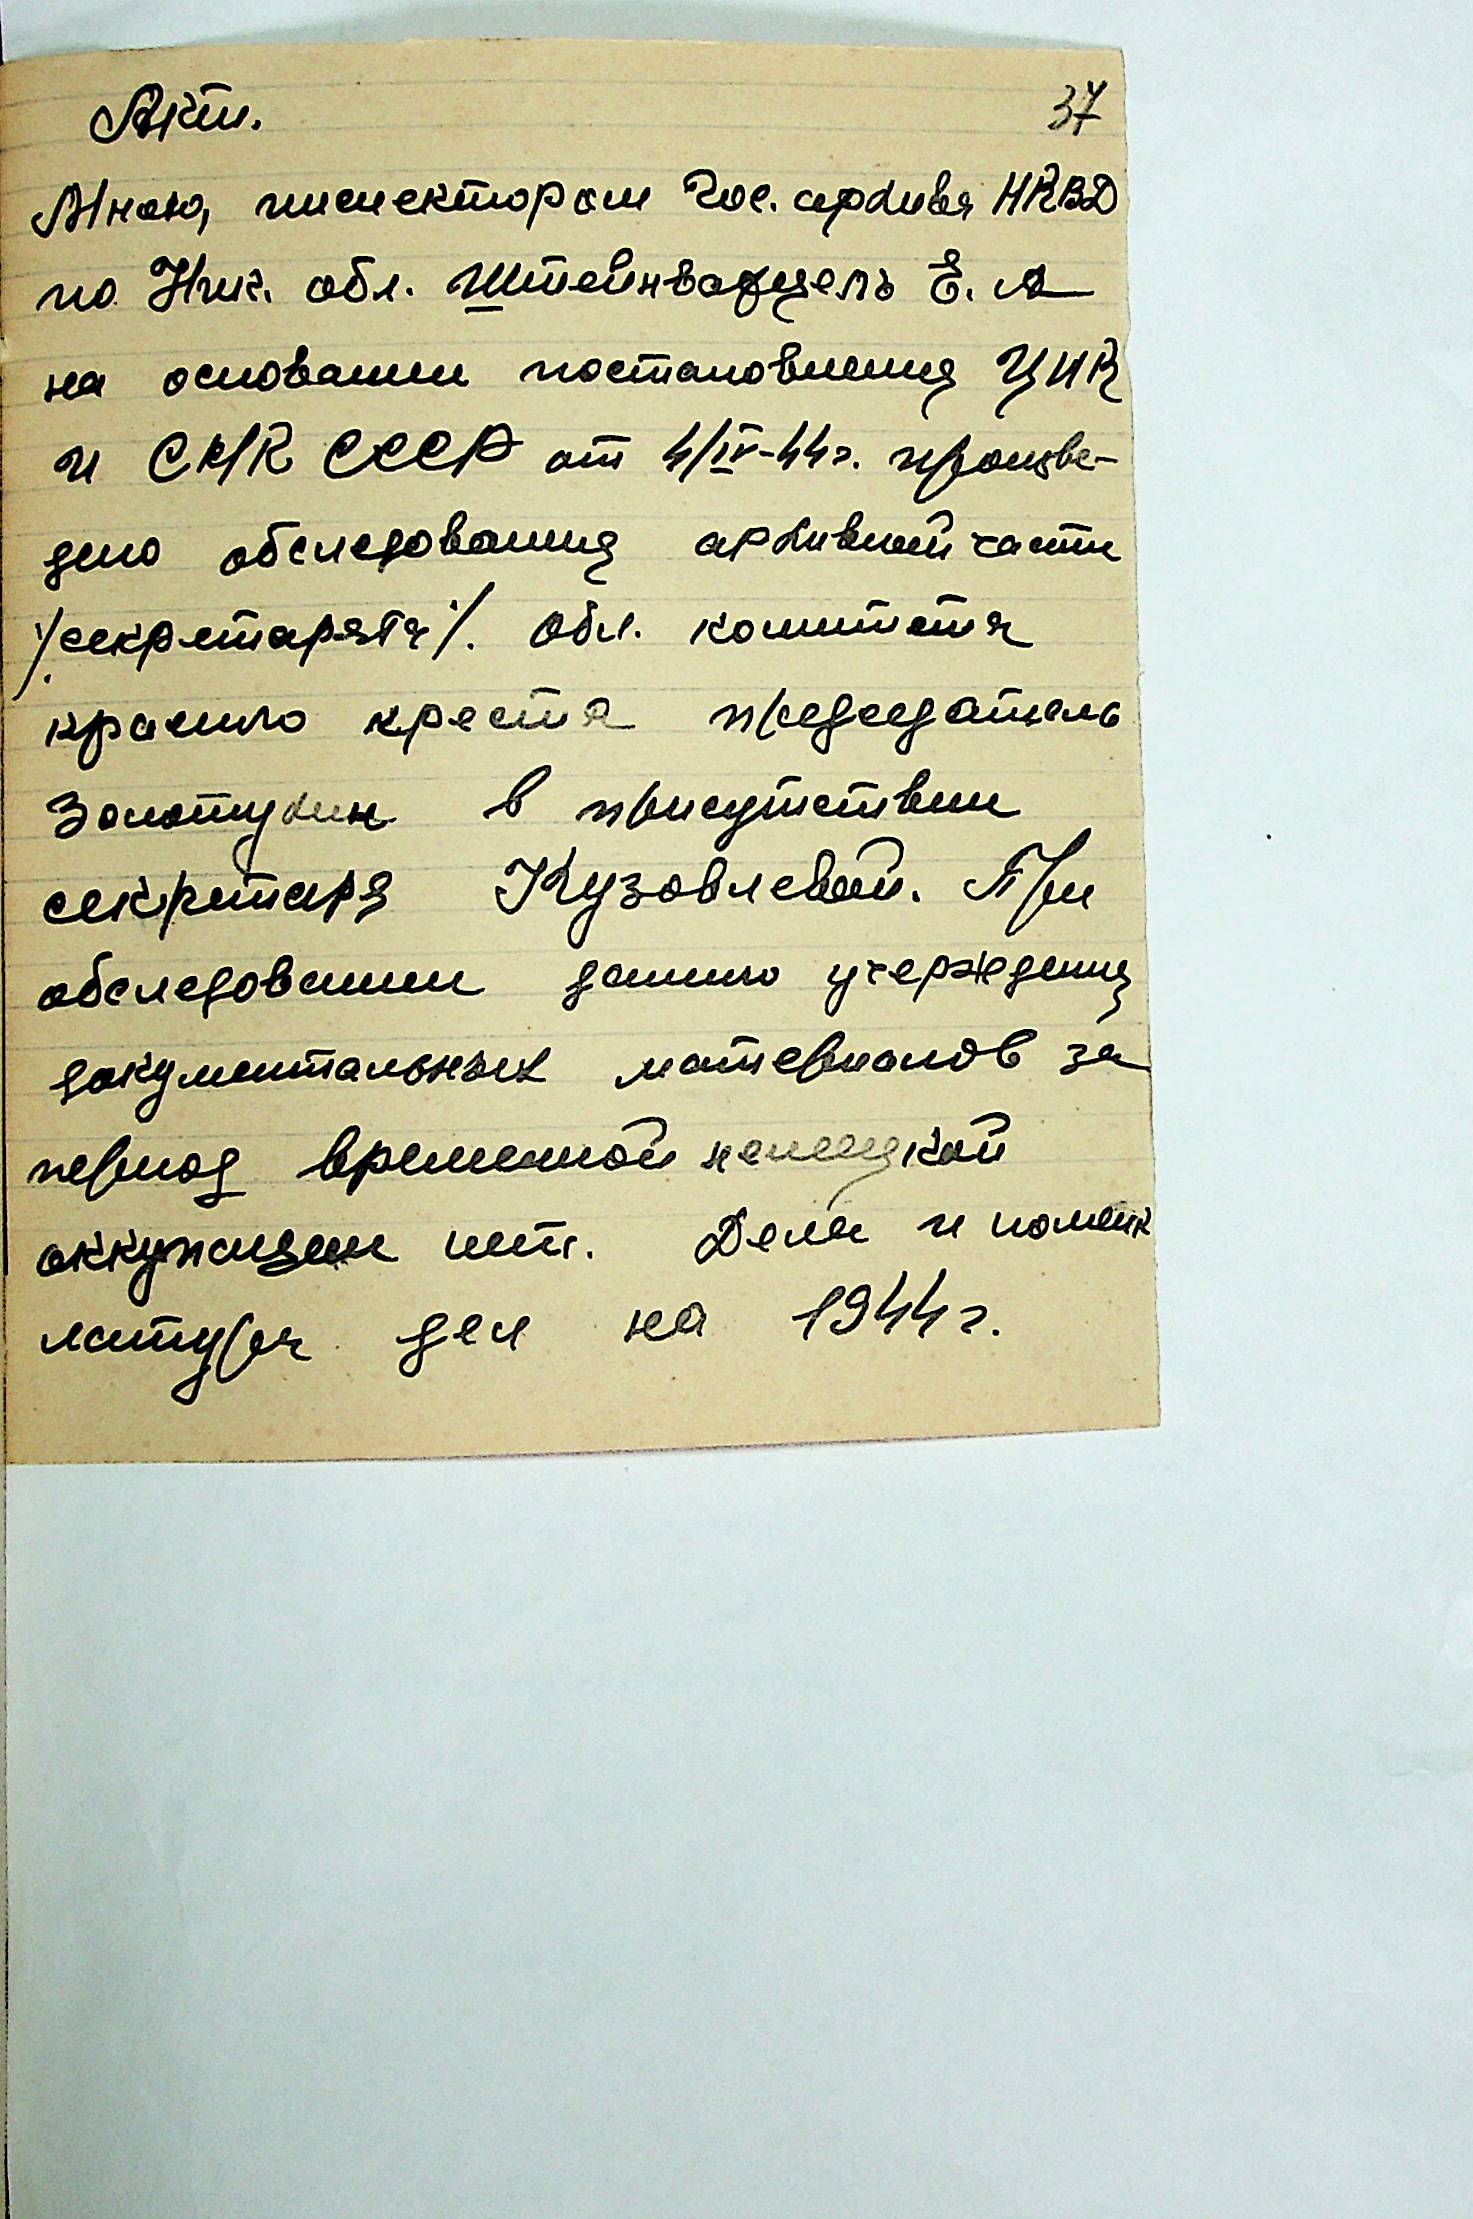 Акт.
37
Мною, инспектором Гос. архива НКВД
по Ник. обл. Штейнварцель Е. А
на основании постановления ЦИК
и СНК СССР от 4/IV-44г. произве-
дено обследования архивной части
/секретарята/. Обл. комитета
красного креста председатель
Золотухин в присутствии
секретаря Кузовлевой. При
обследовании данного учереждения
документальных материалов за
период временной немецкой
оккупации нет. Дела и номенк
латура дел на 1944г.